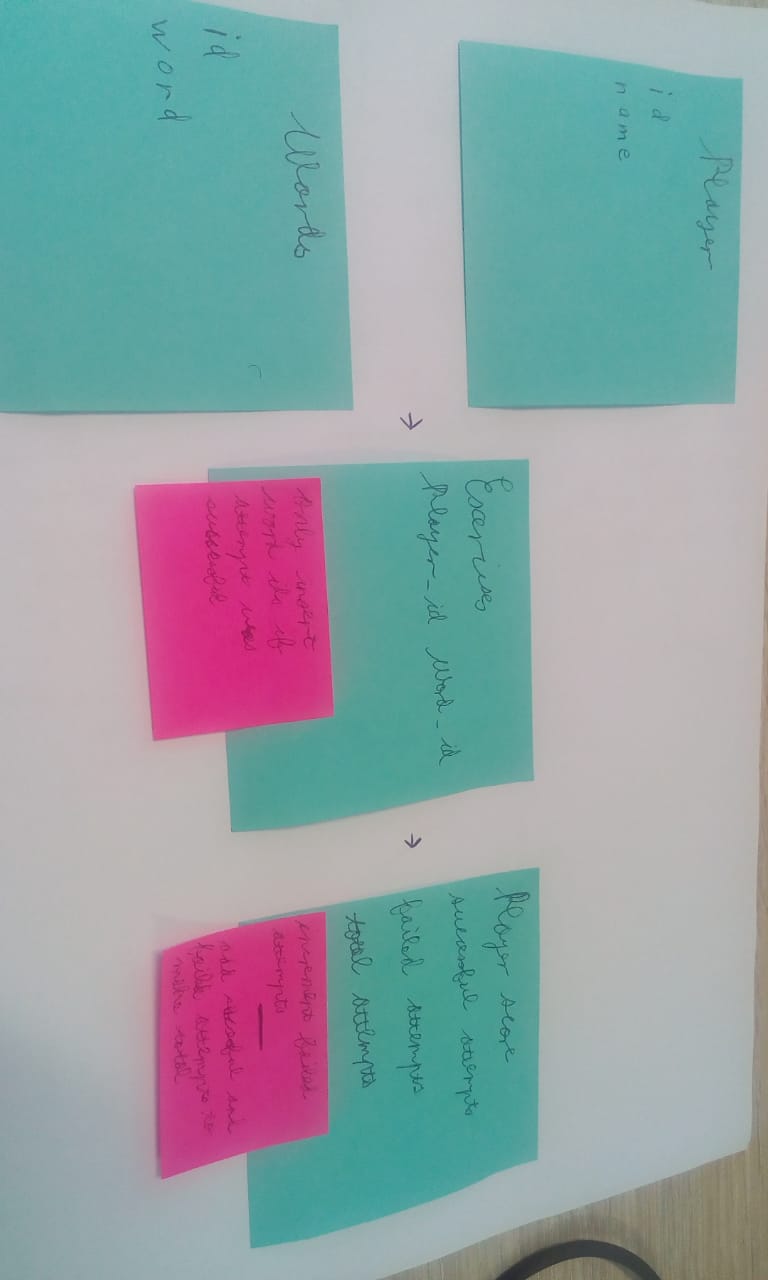 Player
id
name
Words
id
word
Exercises
Player_id word_id
only insert
word ids if
attempt was
successful
Player score
successful attempts
failed attempts
total attempts
increment failed
attempts
add successful and
failed attempts to
make total